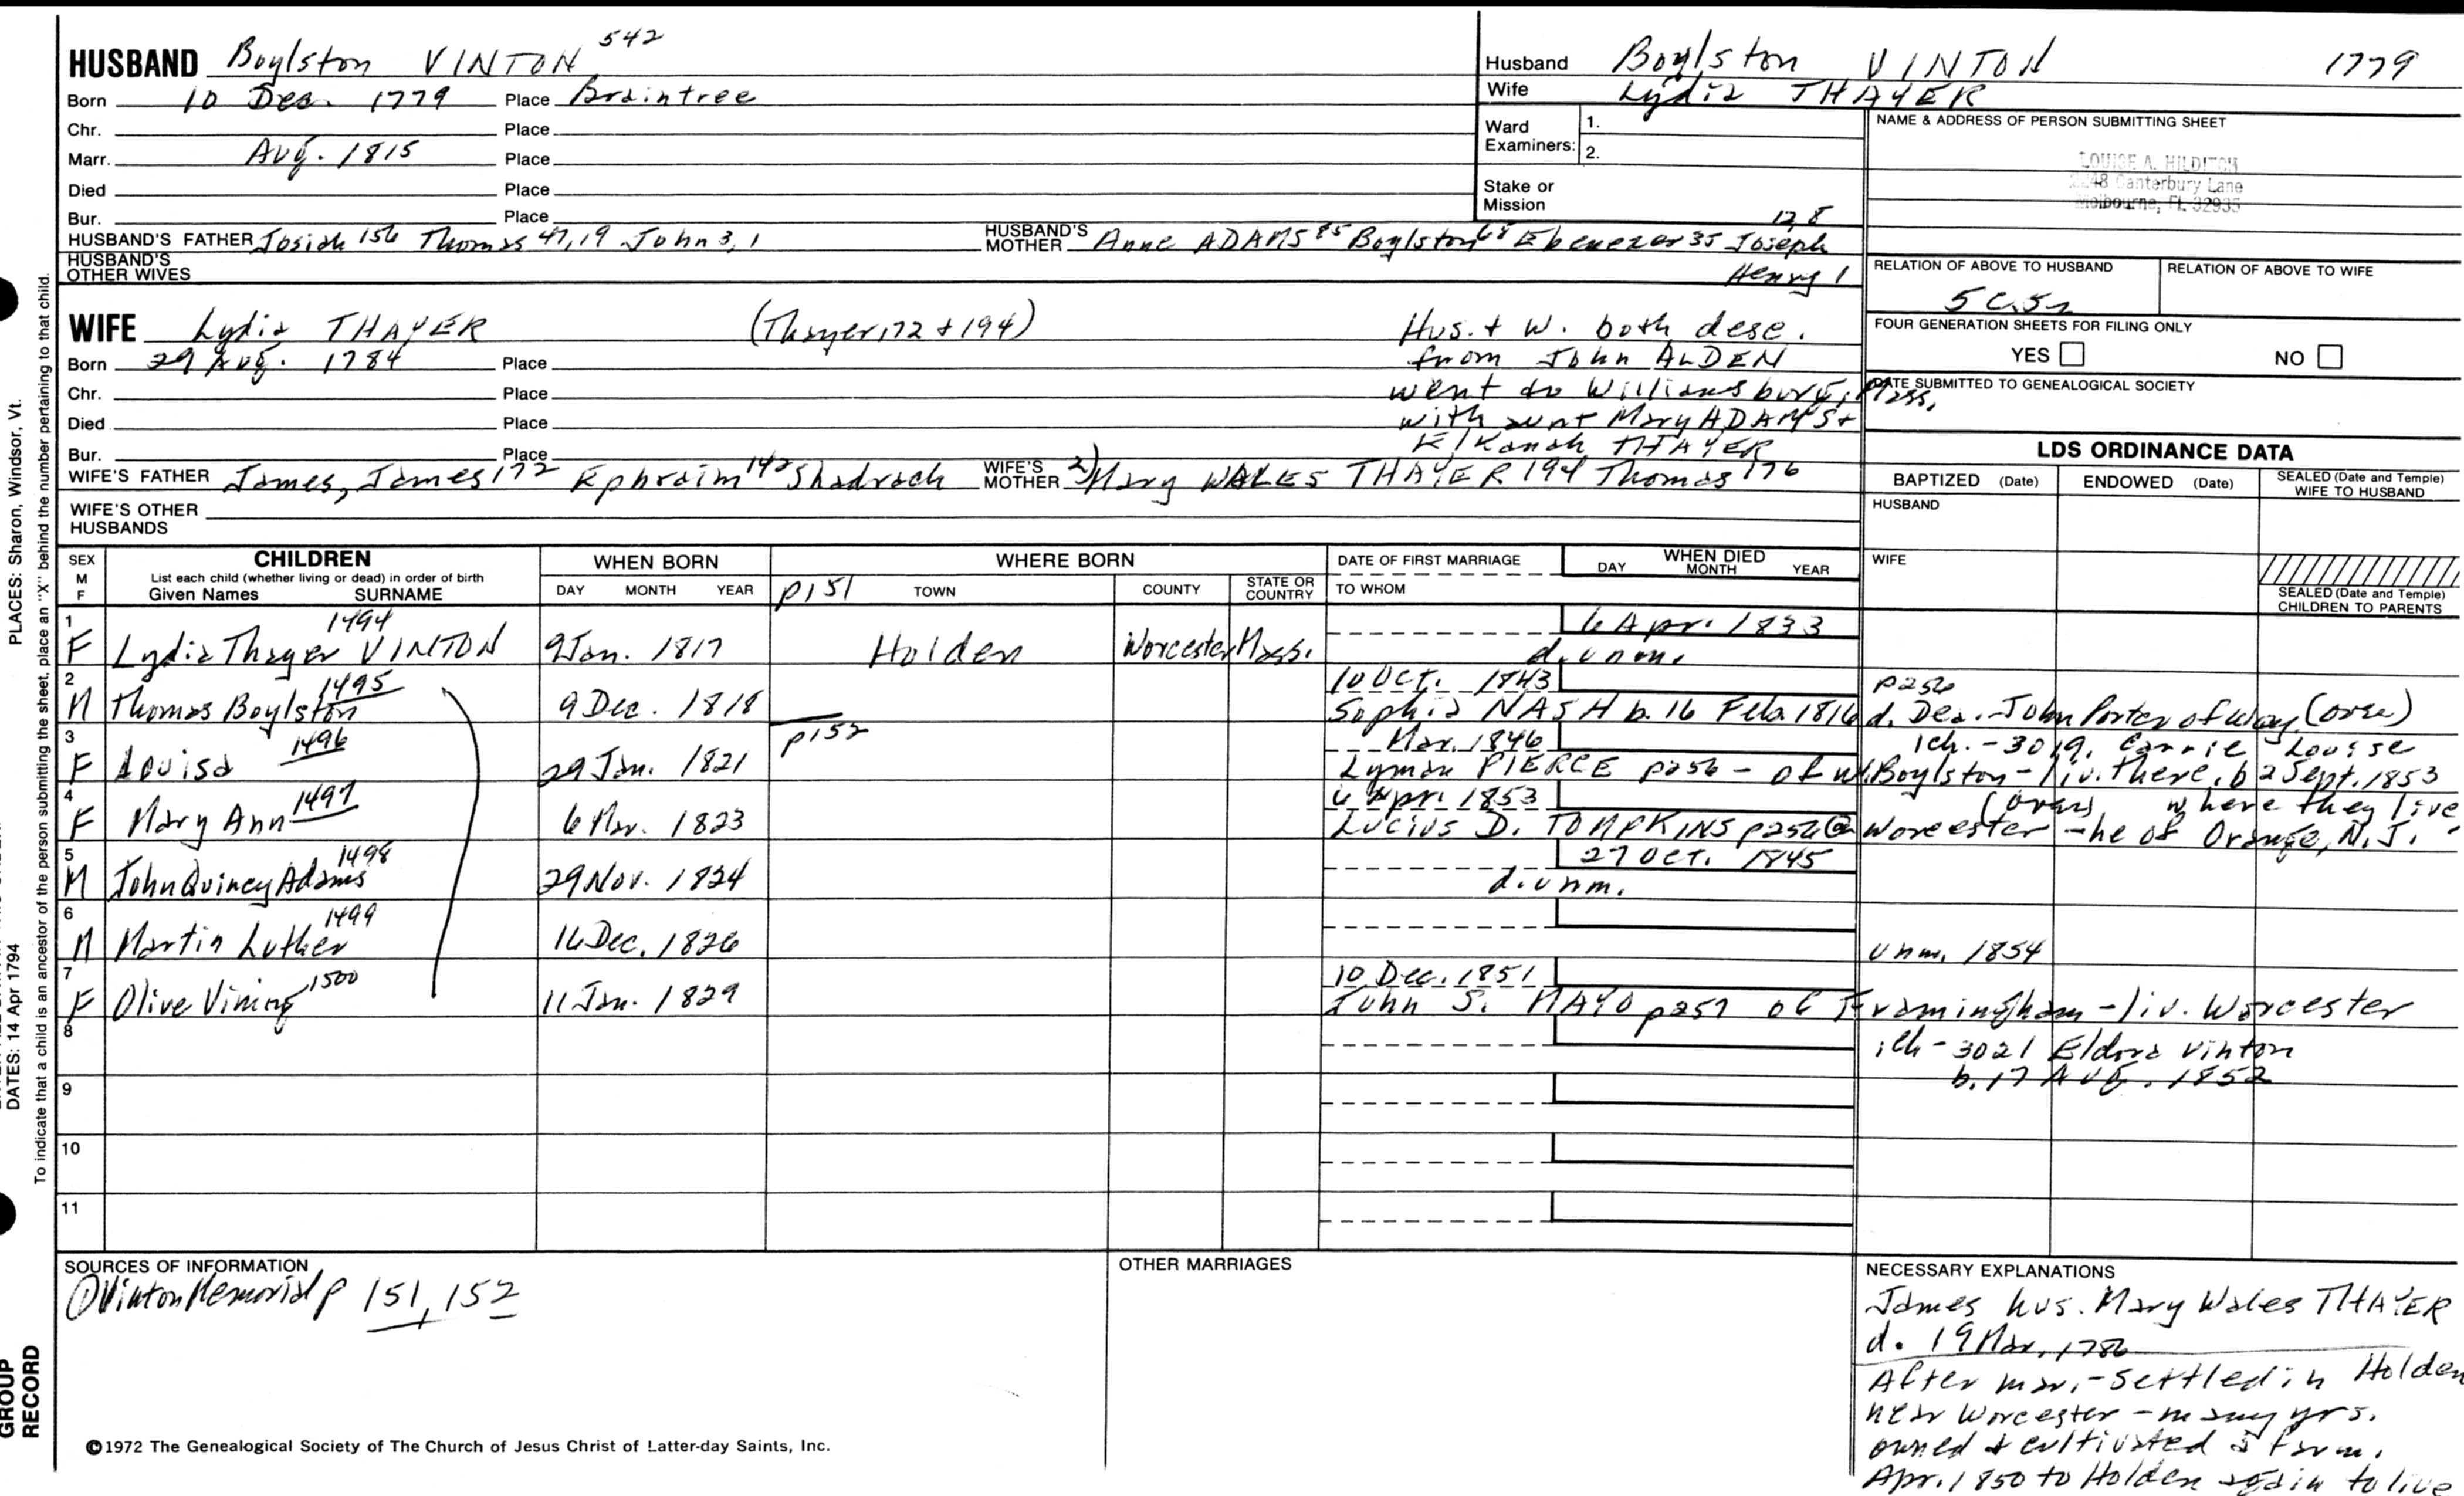 HUSBAND Boylston VINTON 542
Born 10 Dec. 1779 Place Braintree
Chr. Place
Marr. Aug. 1815 Place
Died Place
Bur. Place
HUSBAND'S FATHER Josiah 156 Thomas 47, 19 John 3, 1 HUSBAND'S MOTHER Anne ADAMS 85 Boylston 68 Ebenezer 35 Joseph 12, 8
HUSBAND'S OTHER WIVES Henry 1
Husband Boylston VINTON 1779
Wife Lydia THAYER
Ward Examiners: 1.
2.
Stake or Mission
NAME & ADDRESS OF PERSON SUBMITTING SHEET
LOUISE A. HILDITCH
48 Canterbury Lane
Melbourne, FL 32935
RELATION OF ABOVE TO HUSBAND RELATION OF ABOVE TO WIFE
5 C.5r
FOUR GENERATION SHEETS FOR FILING ONLY
YES NO
DATE SUBMITTED TO GENEALOGICAL SOCIETY
WIFE Lydia THAYER (Thayer 172 + 194)
Born 29 Aug. 1784 Place
Chr. Place
Died Place
Bur. Place
Hus. + W. both desc.
from John ALDEN
went to Williamsburg, Mass.
with aunt Mary ADAMS +
Elkanah THAYER
WIFE'S FATHER James, James 172 Ephraim 142 Shadrach WIFE'S MOTHER 2) Mary WALES THAYER 194 Thomas 176
WIFE'S OTHER HUSBANDS
LDS ORDINANCE DATA
BAPTIZED (Date) ENDOWED (Date) SEALED (Date and Temple) WIFE TO HUSBAND
HUSBAND
WIFE
SEALED (Date and Temple) CHILDREN TO PARENTS
SEX M F CHILDREN List each child (whether living or dead) in order of birth Given Names SURNAME
WHEN BORN DAY MONTH YEAR
WHERE BORN p151 TOWN COUNTY STATE OR COUNTRY
DATE OF FIRST MARRIAGE TO WHOM
WHEN DIED DAY MONTH YEAR
1 F Lydia Thayer VINTON 1494 9 Jan. 1817 Holden Worcester Mass. 6 Apr. 1833
d. unm.
2 M Thomas Boylston 1495 9 Dec. 1818 10 Oct. 1843 p256
Sophia NASH b. 16 Feb. 1816 d. Dea. John Porter of Wey. (over)
3 F Louisa 1496 29 Jan. 1821 p152 Mar. 1846 1ch. - 3019, Carrie Louise
Lyman PIERCE p256 - of W. Boylston - liv. there, b 2 Sept. 1853
4 F Mary Ann 1497 6 Mar. 1823 6 Apr. 1853 (over) where they live
Lucius D. TOMPKINS p256 Worcester - he of Orange, N.J.
5 M John Quincy Adams 1498 29 Nov. 1824 27 Oct. 1845
d. unm.
6 M Martin Luther 1499 16 Dec. 1826 unm. 1854
7 F Olive Vining 1500 11 Jan. 1829 10 Dec. 1851
John S. MAYO p257 of Framingham - liv. Worcester
8 1ch - 3021 Eldora Vinton
b. 17 Aug. 1852
9
10
11
SOURCES OF INFORMATION
① Vinton Memorial p 151, 152
OTHER MARRIAGES
NECESSARY EXPLANATIONS
James hus. Mary Wales THAYER
d. 19 Mar. 1786
After mar. - settled in Holden
near Worcester - many yrs.
owned & cultivated a farm.
Apr. 1850 to Holden again to live
©1972 The Genealogical Society of The Church of Jesus Christ of Latter-day Saints, Inc.
PLACES: Sharon, Windsor, Vt.
DATES: 14 Apr 1794
To indicate that a child is an ancestor of the person submitting the sheet, place an "X" behind the number pertaining to that child.
GROUP
RECORD